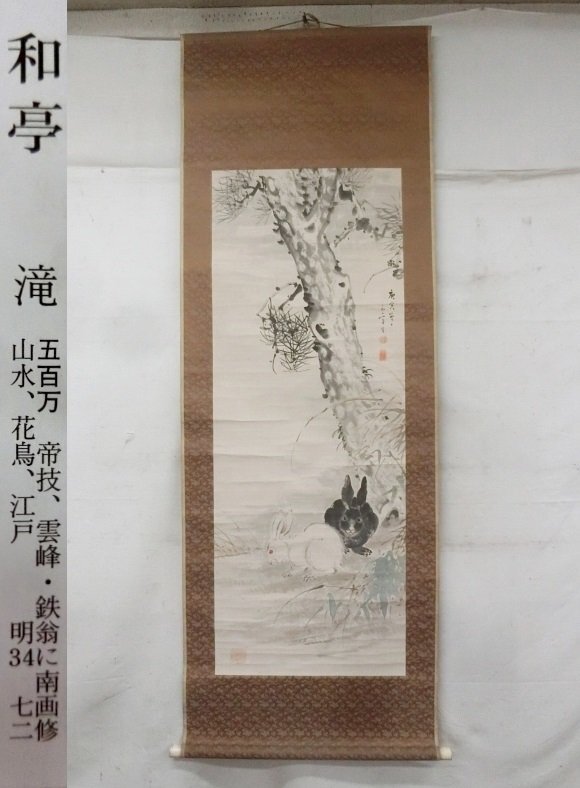 和亭
滝
五百万 帝技、雲峰・鉄翁に南画修
山水、花鳥、江戸 明34 七二